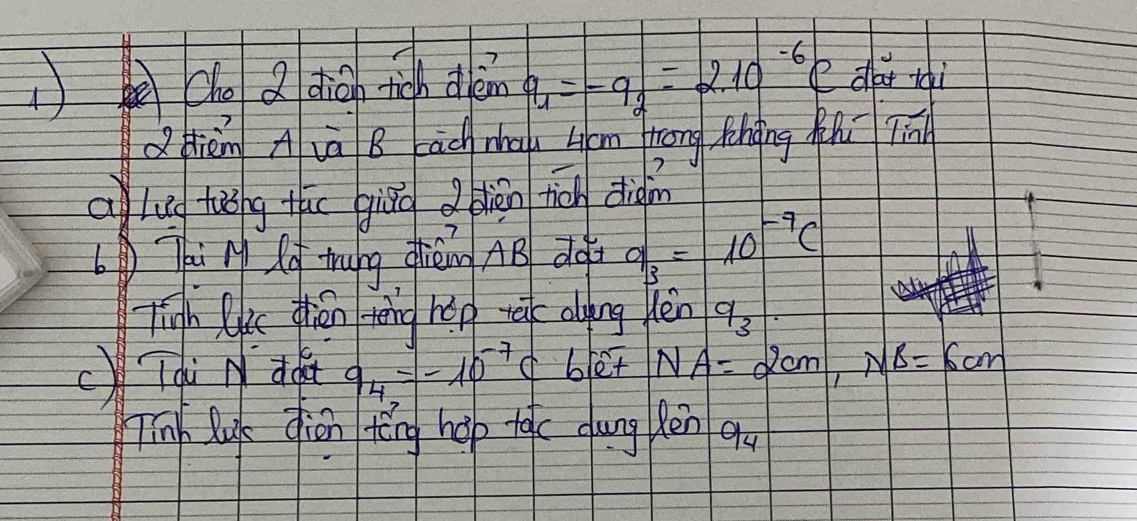 1) Cho 2 điện tích điểm q₁ = -q₂ = 2.10⁻⁶C đặt tại
2 điểm A và B cách nhau 4cm trong không khí Tính
a) Lực tương tác giữa 2 điện tích điểm
b) Tại M là trung điểm AB đặt q₃ = 10⁻⁷C
Tính lực điện tổng hợp tác dụng lên q₃.
c) Tại N đặt q₄ = -10⁻⁷C biết NA = 2cm, NB = 6cm
Tính lực điện tổng hợp tác dụng lên q₄